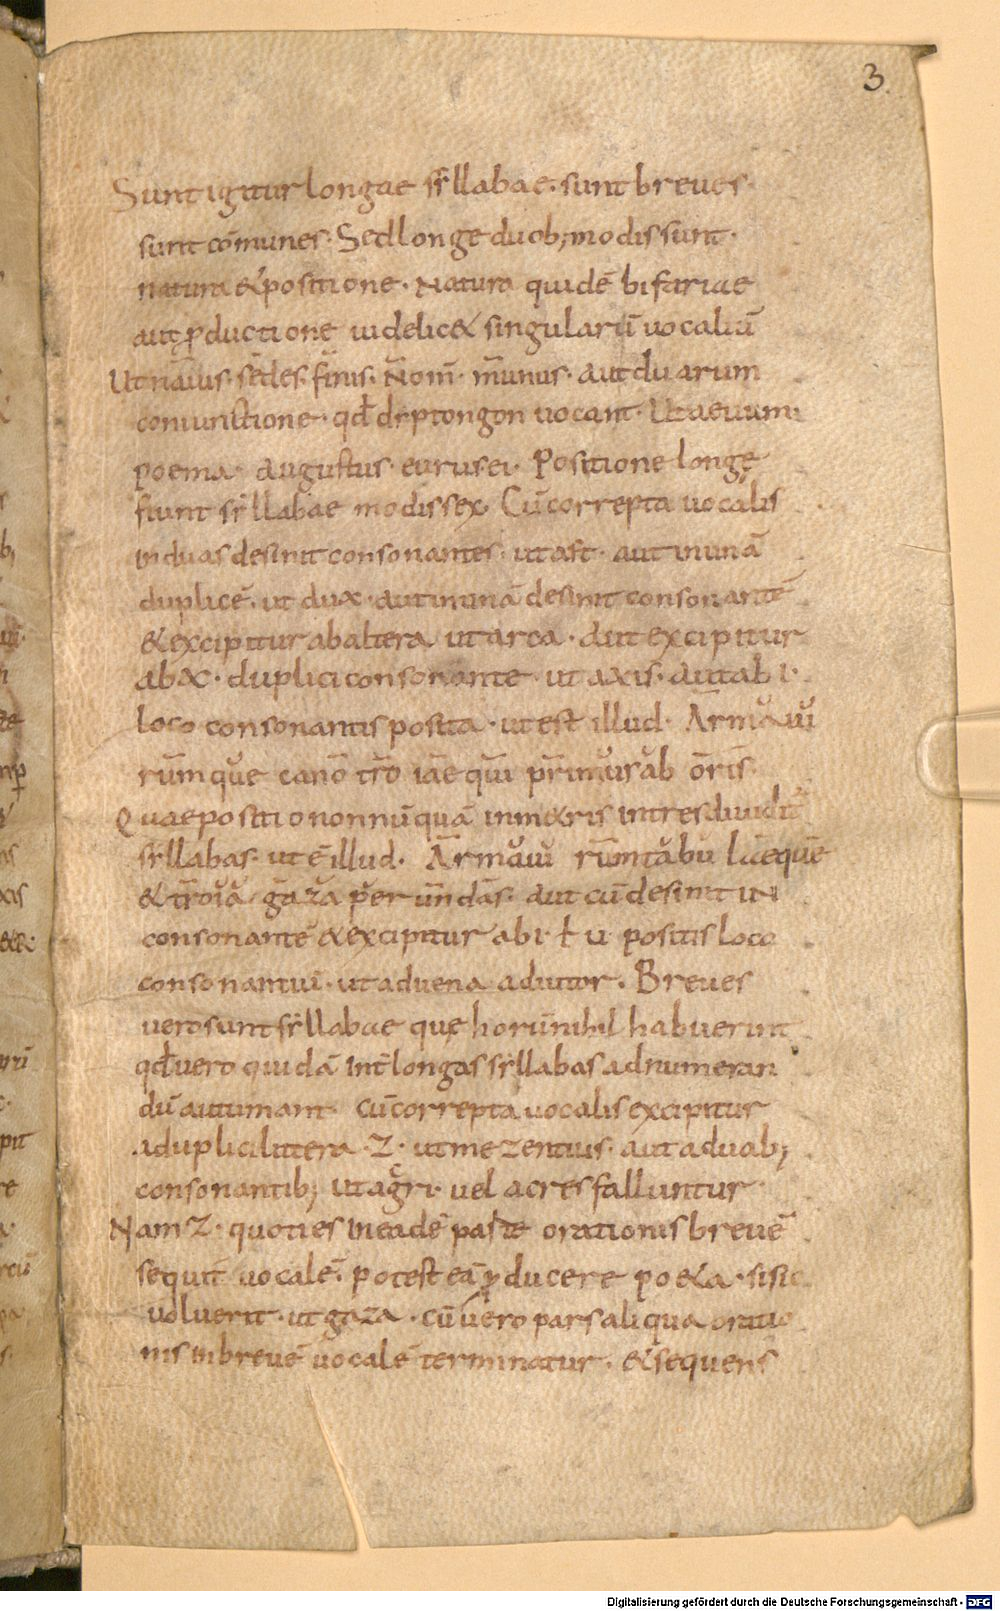 3
Sunt igitur longae syllabae · sunt breues ·
sunt cōmunes · Sed longe duob; modis sunt ·
natura & positione · Natura quidē bifariae
aut ꝓductione uidelic& singulariū uocaliū
Ut nāuis · sēdes · fīnis · Nom̄ · mūnus · aut duarum
coniunctione · qđ dyptongon uocant · Ut aeuum ·
poema · augustus · eurus ei · Positione longę
fiunt syllabae modis sex · Cū correpta uocalis
in duas desinit consonantes · ut ast · aut in unā
duplicē · ut dux · aut in unā desinit consonantē
& excipitur ab altera ut arca · aut excipitur
ab x · duplici consonante ut axis · aut ab i ·
loco consonantis posita · ut est illud · Ārmă uĭ
rūmquĕ canō trō iāe quī prīmŭs ăb ōrīs ·
Quae positio nonnūquā in m&ris in tres diuidit
syllabas · ut ē illud · Ārmă uĭ rūmtăbŭ lāequĕ
& trōĭă gāză pĕr ūndās · aut cū desinit in
consonantē & excipitur ab i · ł u · positis loco
consonantiū · ut aduena adiutor · Breues
uero sunt syllabae quę horū nihil habuerint
qđ uero quidā int̄ longas syllabas adnumeran
dū autumant · cū correpta uocalis excipitur
a duplici littera · z · ut mezentius · aut a duob;
consonantib; ut agri · uel acres falluntur ·
Nam z · quoties in eadē parte orationis breuē
sequit̄ uocalē · potest eā ꝓducere po&a · si sic
uoluerit · ut gaza · cū uero pars aliqua oratio
nis in breuē uocalē terminatur · & sequens
Digitalisierung gefördert durch die Deutsche Forschungsgemeinschaft - DFG